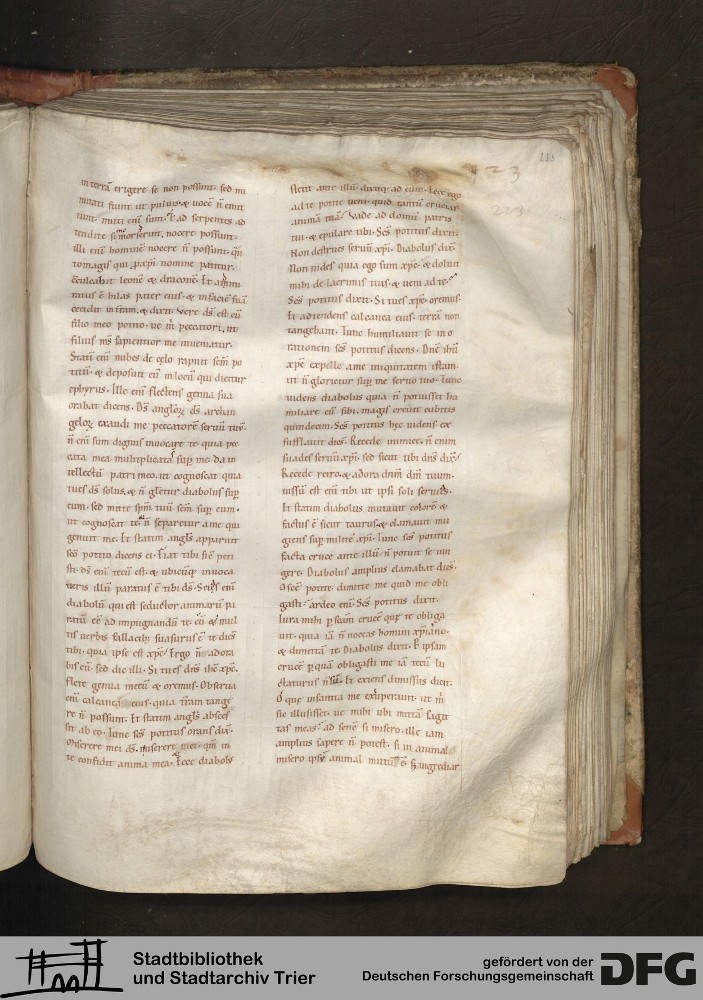 223
in terrā erigere se non possunt. sed mi
nitati fiunt ut puluis. & uocē n̄ emit
tunt. muti enī sunt. & ad serpentes ad
tendite se morserunt. nocere possunt.
illi enī hominē nocere n̄ possunt. qn̄
to magis qui p xp̄i nomine patitur.
cculcabit leonē & draconē. Et
ratus ē hilas pater eius. & in faciē suā
cecidit in t̄ram. & dixit. Vere d̄s est cū
filio meo potito. ue m̄ peccatori. ut
filius m̄s sapientior me inueniatur.
Statī enī nubes de cęlo rapuit sc̄m po
titū. & deposuit eū in locū qui dicitur
ephyrus. Ille enī flectens genua sua
orabat dicens. D̄s angloꝝ d̄s archan
geloꝝ exaudi me peccatorē seruū tuū.
n̄ enī sum dignus inuocare te quia pec
cata mea multiplicata sup me. da in
tellectū patri meo. ut cognoscat quia
tu es d̄s solus. & n̄ gl̄etur diabolus sup
eum. sed mitte sp̄m tuū sc̄m sup eum.
ut cognoscat te. & n̄ separetur a me qui
genuit me. Et statim angl̄s apparuit
sc̄o potito dicens ei. Fiat tibi sic̄ peti
sti. d̄s enī tecū est. & ubicūq inuoca
ueris illū paratus ē tibi d̄s. enī
diabolū qui est seductor animarū pa
ratū eē ad impugnandū te. cū & mul
tis uerbis fallacib suasurus ē te dic̄s
tibi. quia ipse est xp̄c. Ergo n̄ adora
bis eū. sed dic illi. Si tu es dn̄s ih̄c xp̄c.
flecte genua mecū & oremus. Obserua
enī calceanea eius. quia t̄ram tange
re n̄ possunt. Et statim angl̄s absces
sit ab eo. Tunc sc̄s potitus orans dix̄.
Miserere mei d̄s. miserere mei. qm̄ in
te confidit anima mea. Ecce diabolꝰ
stetit ante illū dixitq. ad eum. Ecce ego
ad te potite ueni. quid tantū crucias
animā tuā. Vade ad domū patris
tui. & epulare tibi. Sc̄s potitus dixit.
Non destrues seruū xp̄i. Diabolus dix̄.
Non uides quia ego sum xp̄c. & dolui
mihi de lacrimis tuis. & ueni ad te.
Sc̄s potitus dixit. Si tu es xp̄c. oremus.
Et adtendens calcanea eius. terrā non
tangebant. Tunc humiliauit se in o
rationem sc̄s potitus dicens. Dn̄e ih̄u
xp̄e expelle a me iniquitatem istam.
ut n̄ glorietur sup me seruo tuo. Tunc
uidens diabolus quia n̄ potuisset hu
miliare eum sibi. magis creuit cubitis
quindecim. Sc̄s potitus hęc uidens ex
sufflauit dic̄s. Recede inimice. n̄ enim
suades seruū xp̄i. sed sicut tibi dn̄s dix̄.
Recede retro. & adora dn̄m d̄m tuum.
iussū est enī tibi ut ipsi soli seruies.
Et statim diabolus mutauit colorē &
factus ē sicut taurus. & clamauit mu
giens sup milite xp̄i. Tunc sc̄s potitus
facta cruce ante illū. n̄ potuit se iun
gere. Diabolus amplius clamabat dic̄s.
O sc̄e potite dimitte me quid me obli
gasti. ardeo enī. Sc̄s potitus dixit.
Iura mihi p sc̄am crucē quę te obliga
uit. quia iā n̄ noceas homini xp̄iano.
& dimittā te. Diabolus dixit. P ipsam
crucē p quā obligasti me iā tecū lu
ctaturus n̄ sū. Et exiens dimissus dicit.
O quę infantia me expauit. ut m̄
sic illusisset. ue mihi ubi mittā sagit
tas meas. ad senē si misero. ille iam
amplius sapere n̄ potest. si in animal
misero ipsū animal mutū ē. Si ingrediar
Stadtbibliothek
und Stadtarchiv Trier
gefördert von der
Deutschen Forschungsgemeinschaft
DFG